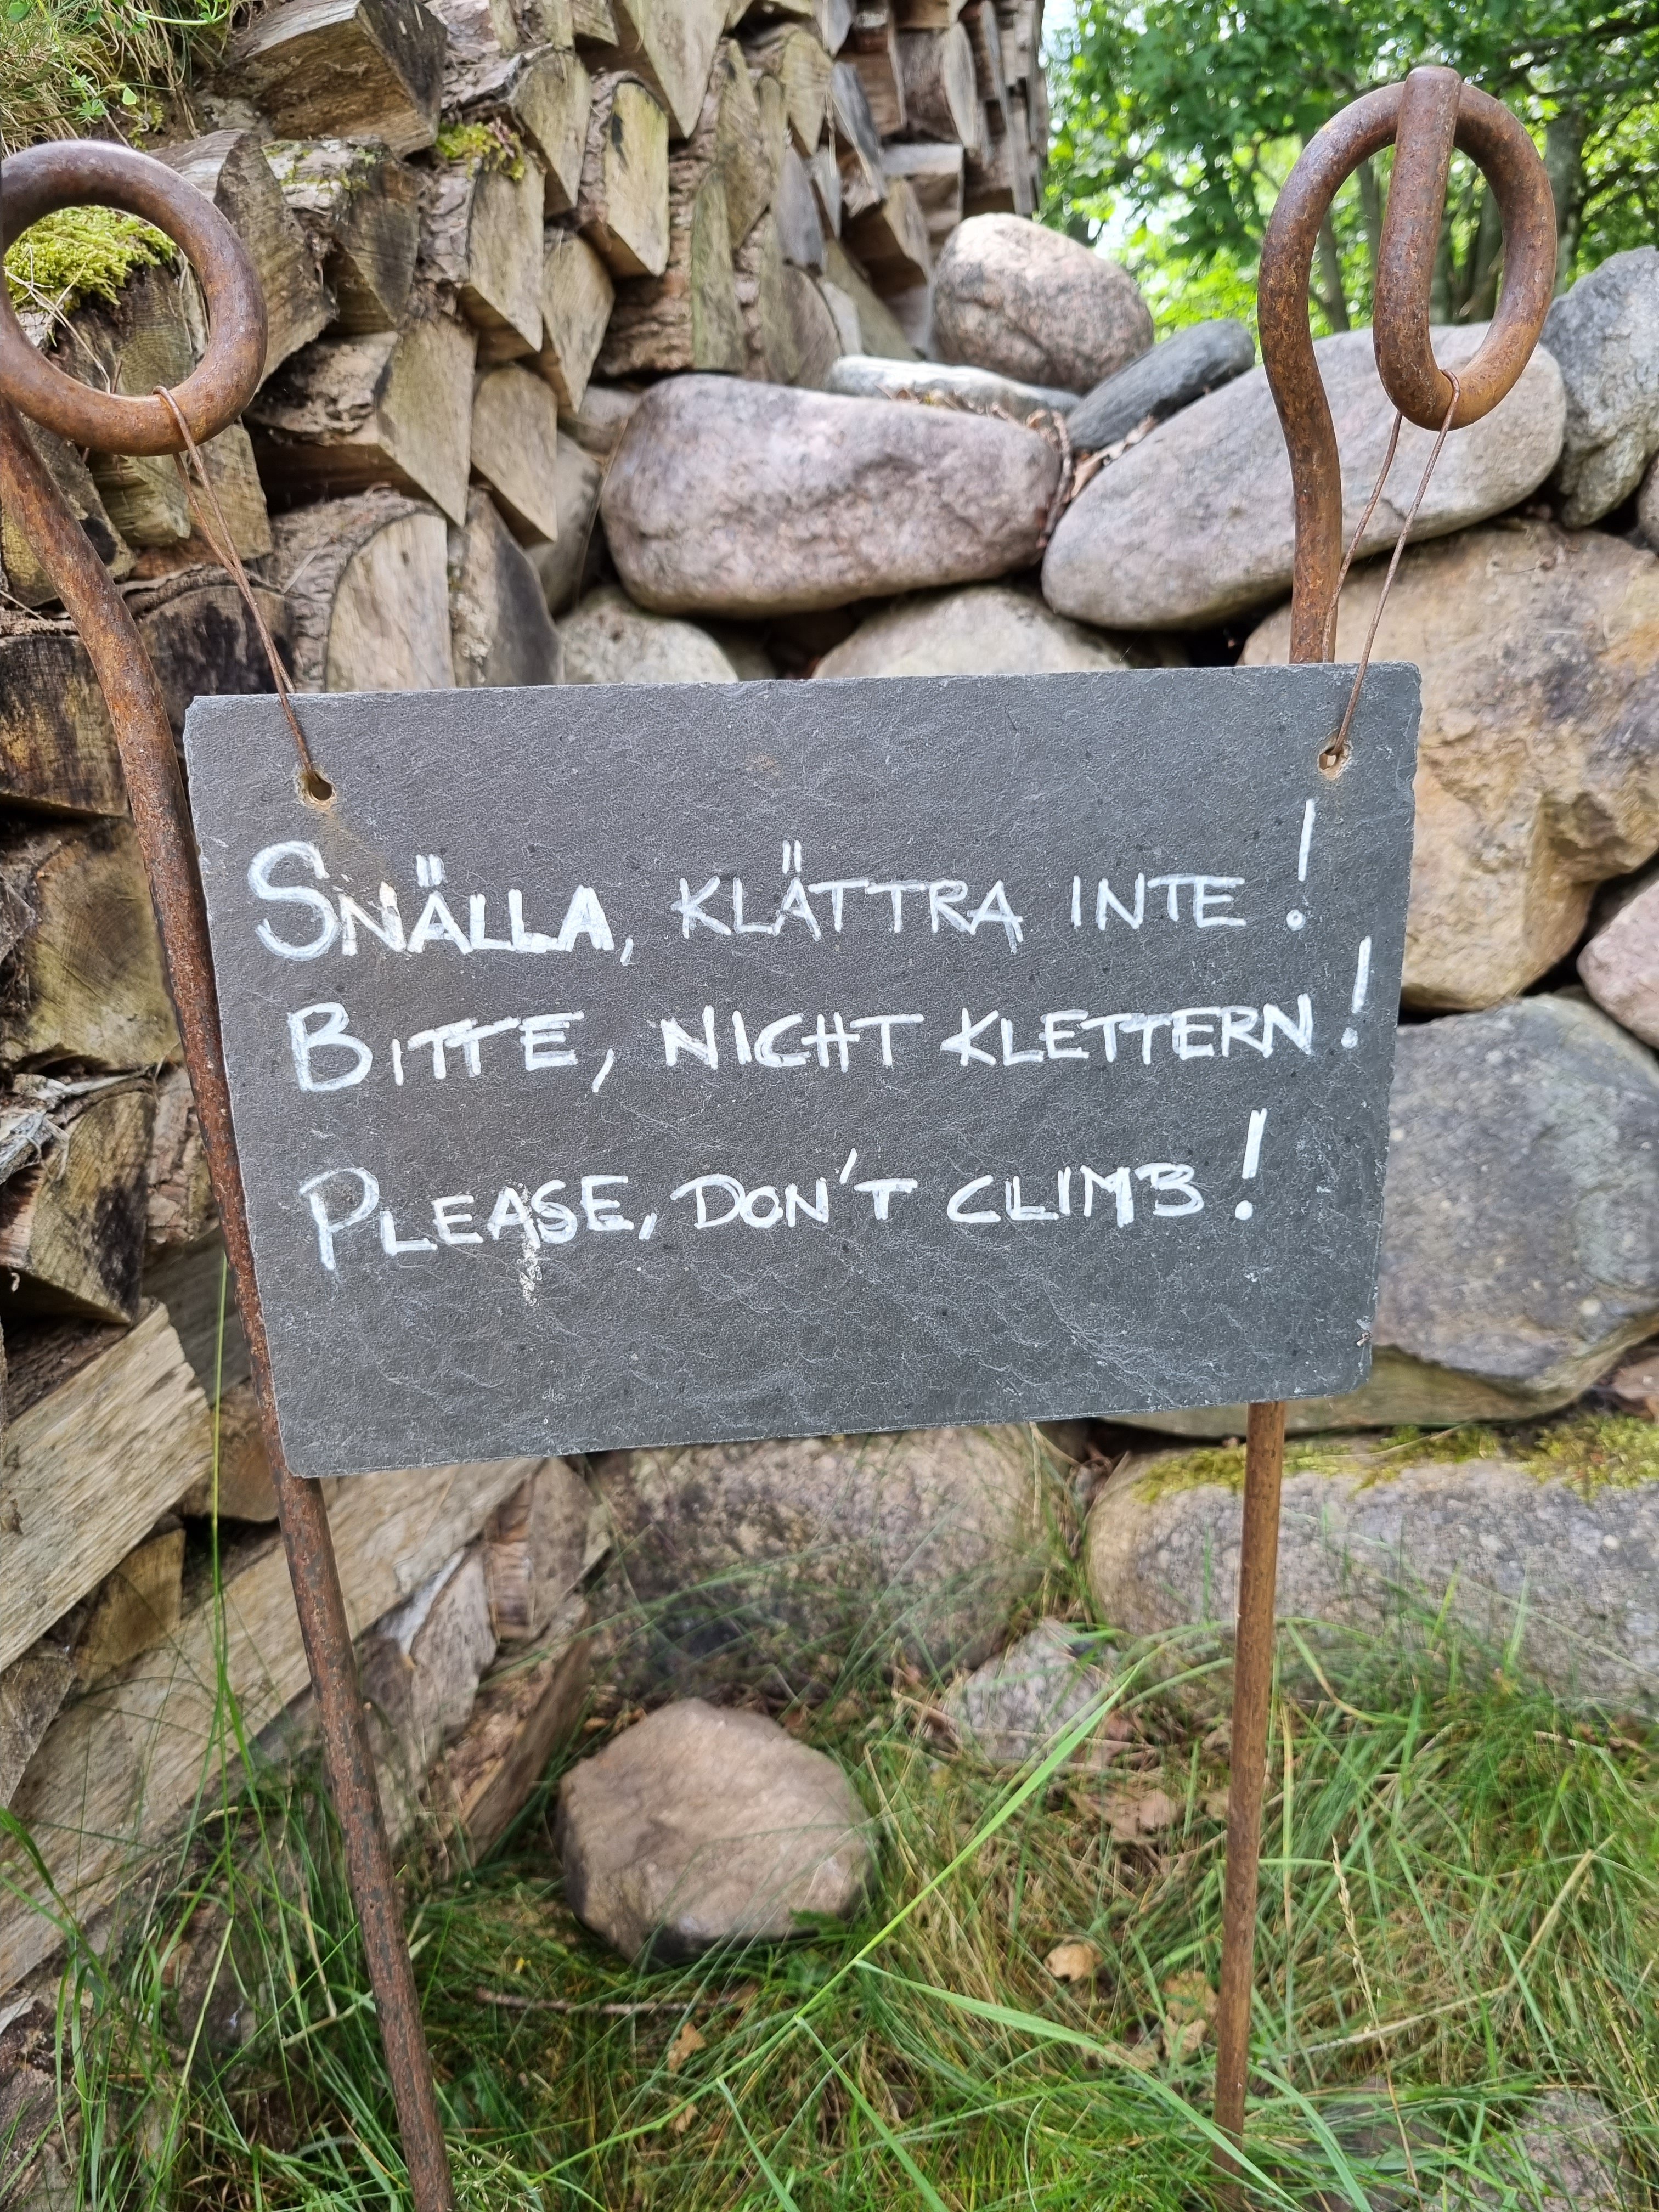 SNÄLLA, KLÄTTRA INTE!
BITTE, NICHT KLETTERN!
PLEASE, DON'T CLIMB!